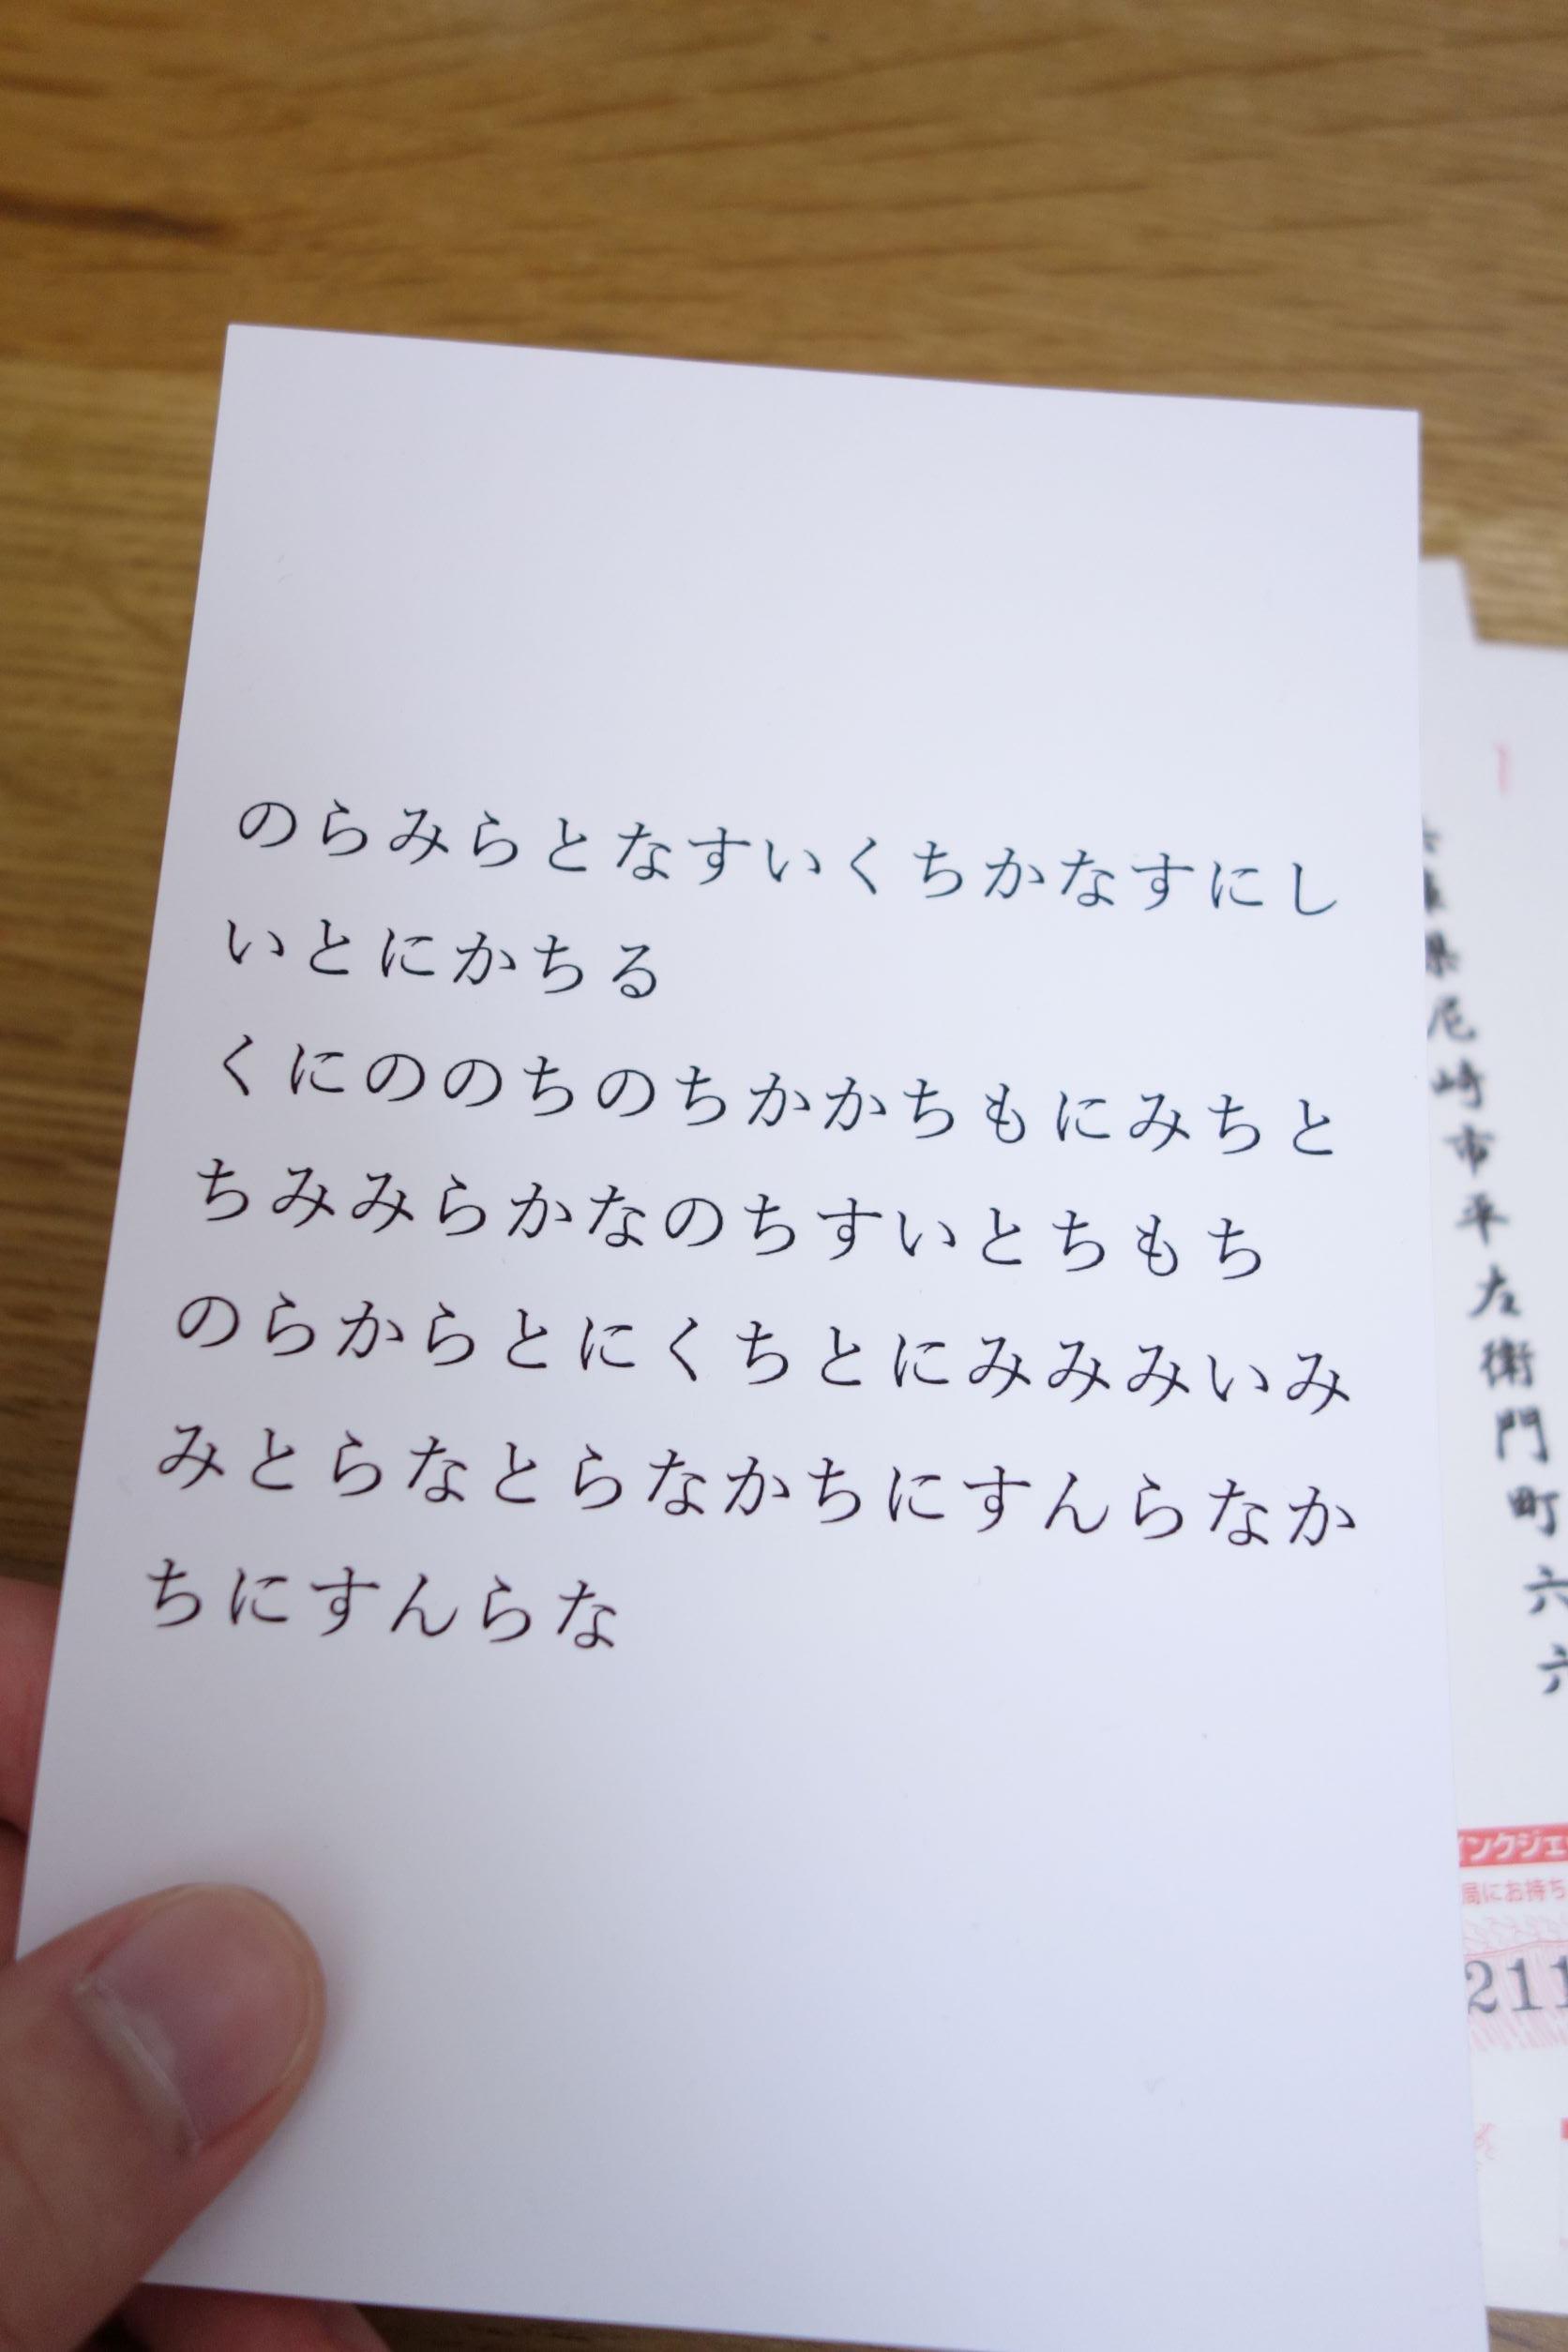 のらみらとなすいくちかなすにし
いとにかちる
くにののちのちかかちもにみちと
ちみみらかなのちすいとちもち
のらからとにくちとにみみみいみ
みとらなとらなかちにすんらなか
ちにすんらな
県尼崎市平左衛門町六六
ンクジェ
局にお持ち
211